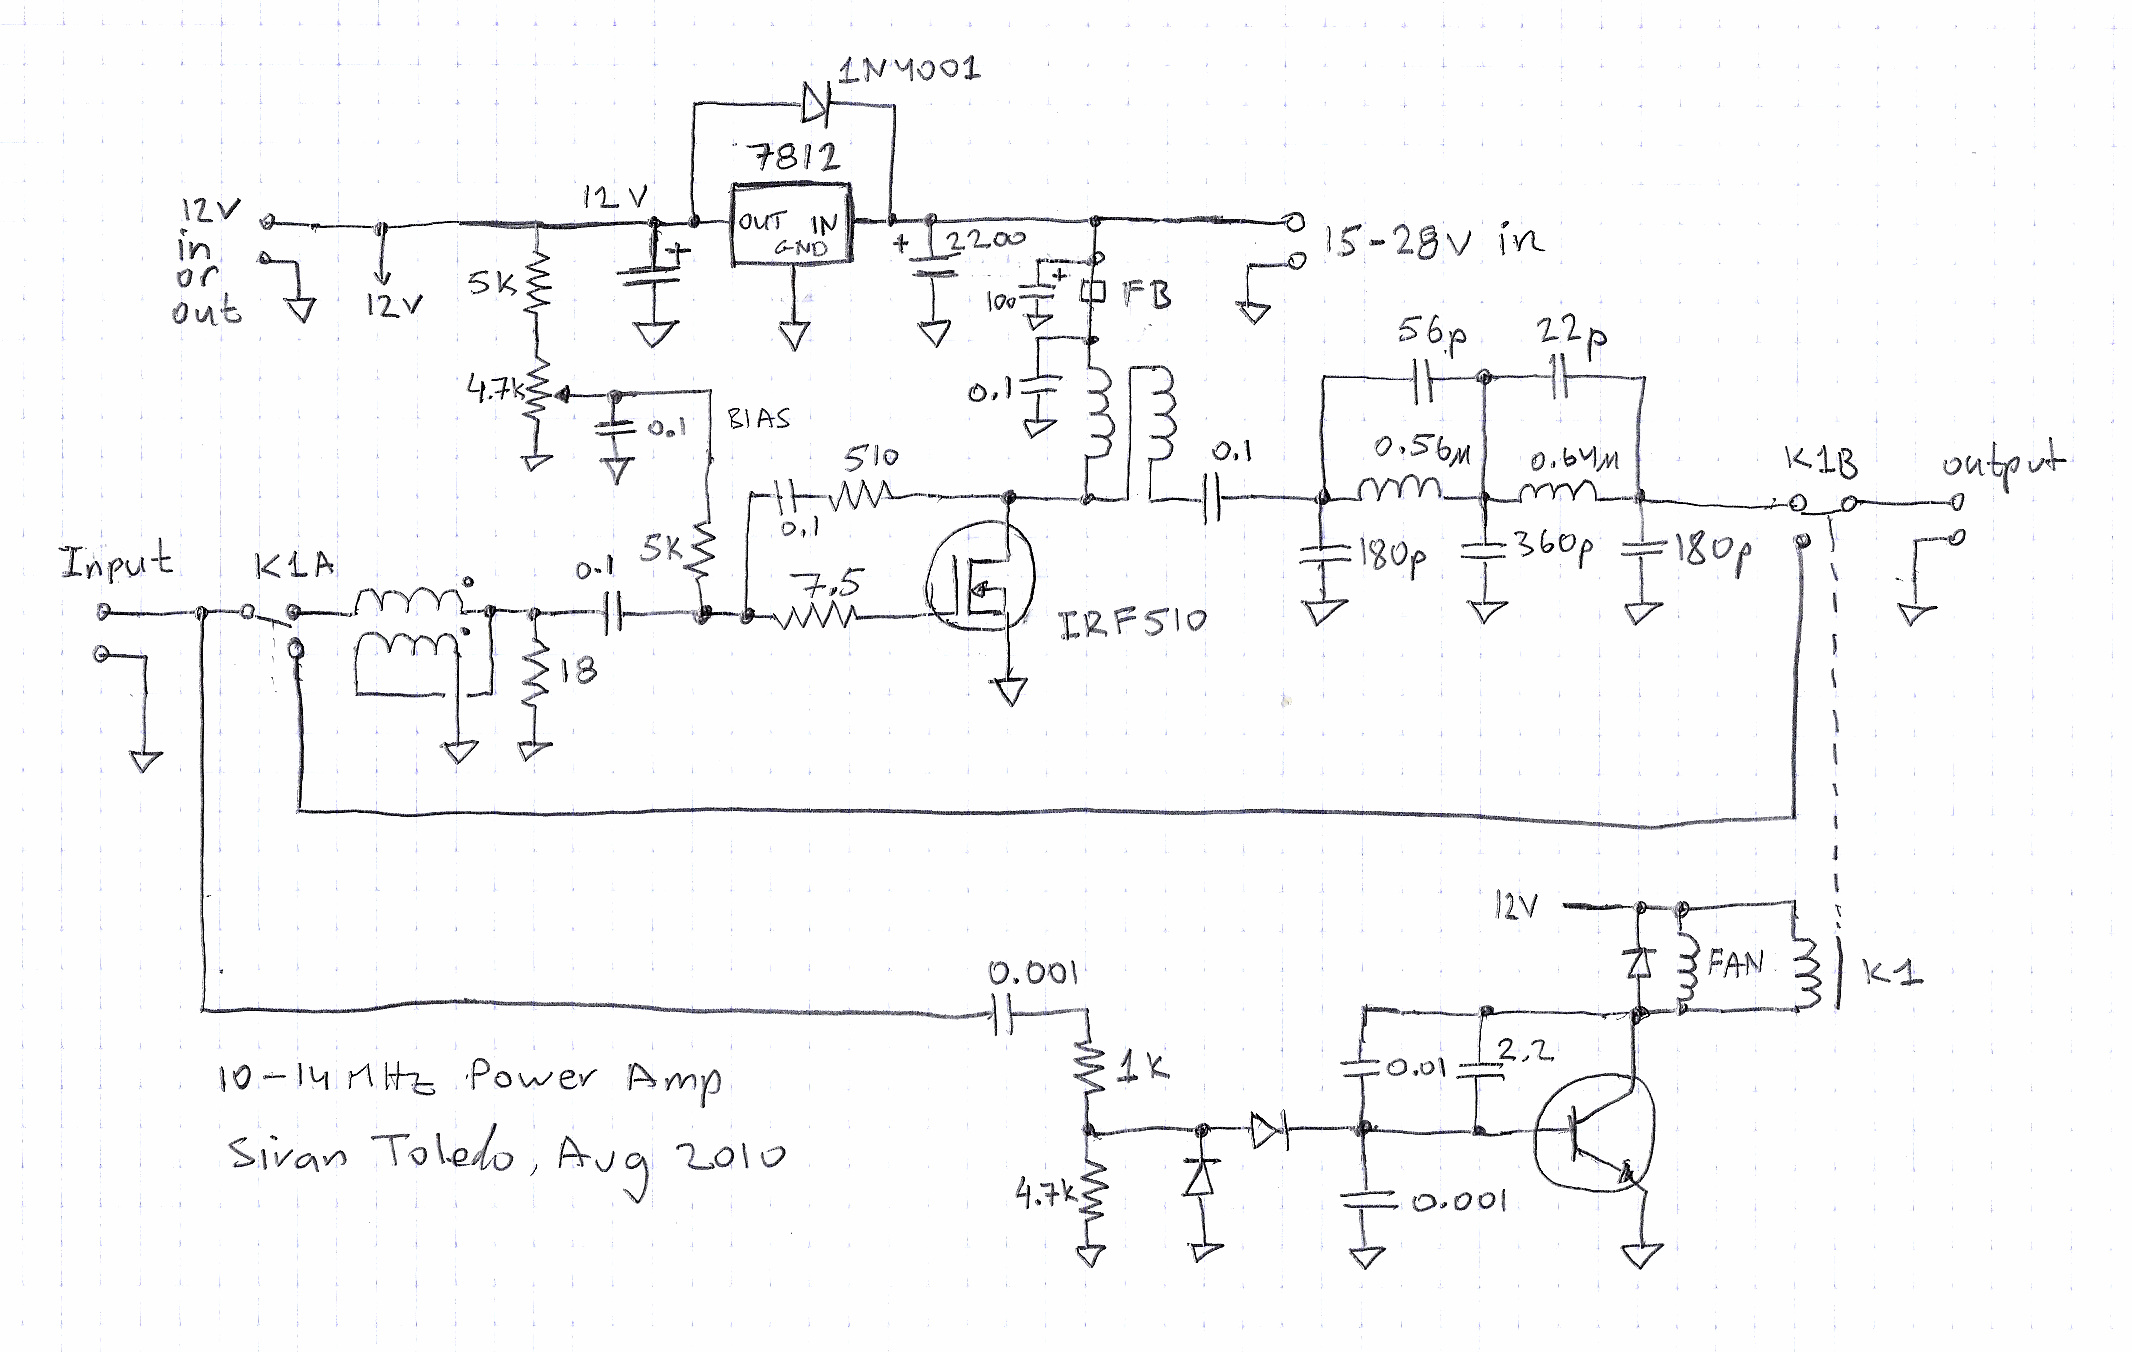 1N4001
7812
12V
in
or
out
12V
12 V
OUT IN
GND
+
+ 2200
15-28V in
5K
100
+
FB
56p
22p
4.7k
0.1
BIAS
0.1
0.56µ
0.64µ
K1B
output
510
0.1
0.1
5K
180p
360p
180p
Input
K1A
0.1
7.5
IRF510
18
12V
FAN
K1
0.001
10-14 MHz Power Amp
1K
0.01
2.2
Sivan Toledo, Aug 2010
4.7k
0.001